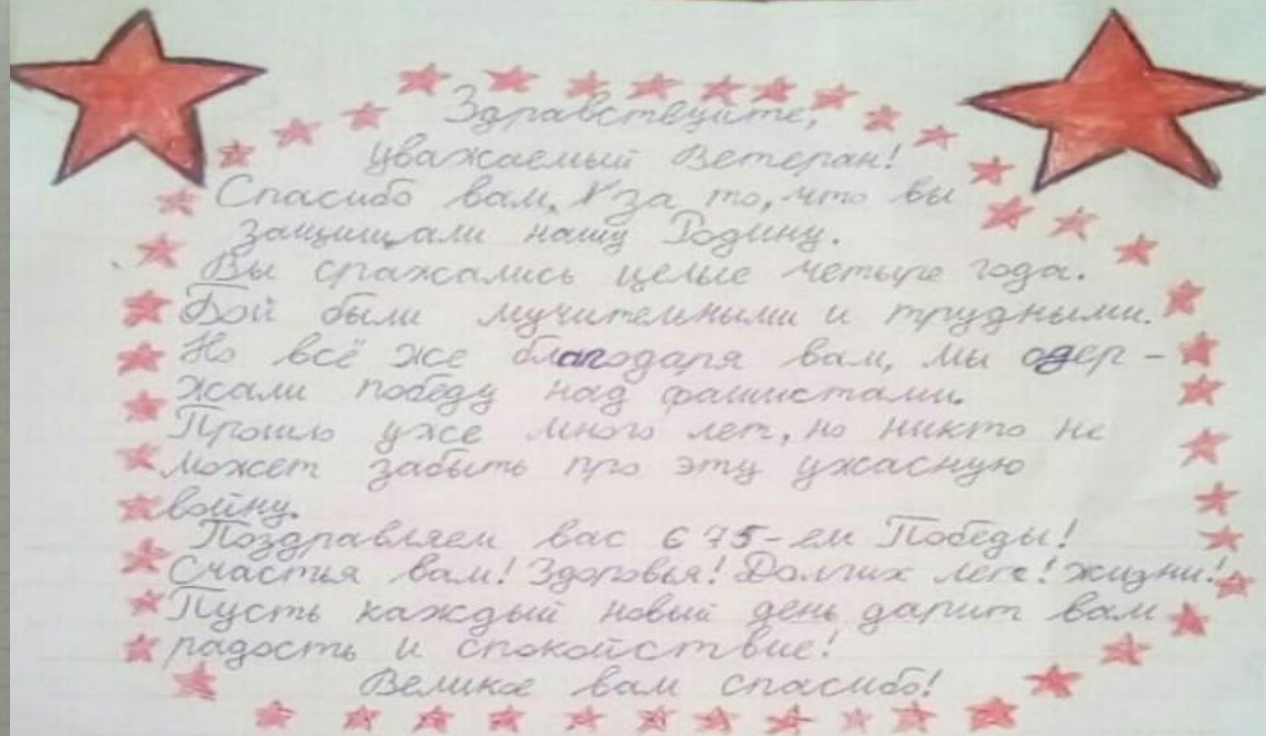 Здравствуйте,
уважаемый Ветеран!
Спасибо вам, за то, что вы
защищали нашу Родину.
Вы сражались целые четыре года.
Бой были мучительными и трудными.
Но всё же благодаря вам, мы одер-
жали победу над фашистами.
Прошло уже много лет, но никто не
может забыть про эту ужасную
войну.
Поздравляем вас с 75-ем Победы!
Счастья вам! Здоровья! Долгих лет! жизни!
Пусть каждый новый день дарит вам
радость и спокойствие!
Великое вам спасибо!